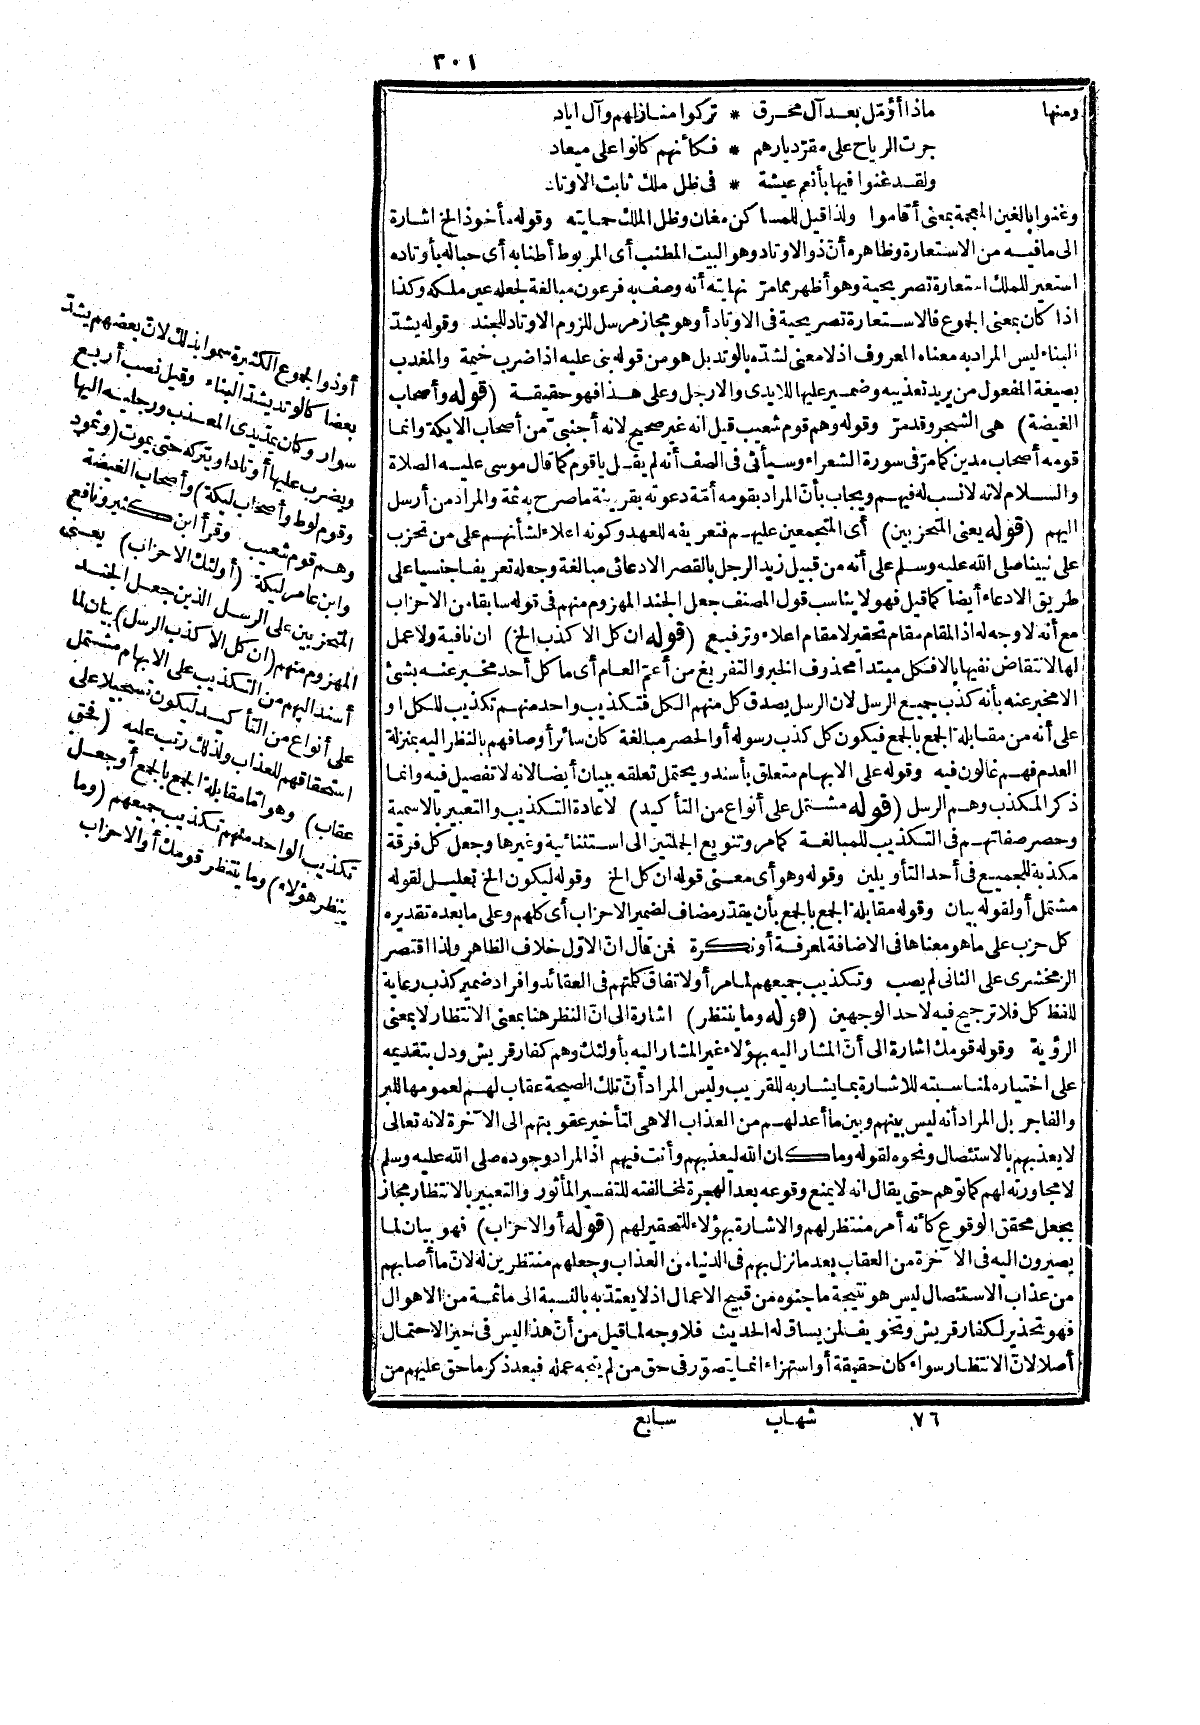 ٣٠١
ومنها ماذا أؤمّل بعد آل محرق * تركوا منازلهم وآل اياد
جرت الرياح على مقرّ ديارهم * فكأنهم كانوا على ميعاد
ولقد غنوا فيها بأنعم عيشة * فى ظل ملك ثابت الاوتاد
وغنوا بالغين المعجمة بمعنى أقاموا ولذا قيل للمساكن مغان وظل الملك حمايته وقوله مأخوذ الخ اشارة
الى ما فيه من الاستعارة وظاهره أنّ ذو الاوتاد وهو البيت المطنب أى المربوط أطنابه أى حباله بأوتاده
استعير للملك استعارة تصريحية وهو أظهر مما مرّ نهايته أنه وصف به فرعون مبالغة لجعله عين ملكه وكذا
اذا كان بمعنى الجموع فالاستعارة تصريحية فى الاوتاد أو هو مجاز مرسل للزوم الاوتاد للجند وقوله يشدّ
البناء ليس المراد به معناه المعروف اذ لا معنى لشدّه بالوتد بل هو من قوله بنى عليه اذا ضرب خيمة والمغدب
بصيغة المفعول من يريد تعذيبه وضمير عليها للايدى والارجل وعلى هذا فهو حقيقة (قوله وأصحاب
الغيضة) هى الشجر وقد مرّ وقوله وهم قوم شعيب قيل انه غير صحيح لانه أجنبىّ من أصحاب الايكة وانما
قومه أصحاب مدين كما مرّ فى سورة الشعراء وسيأتى فى الصف أنه لم يقل يا قوم كما قال موسى عليه الصلاة
والسلام لانه لا نسب له فيهم ويجاب بأنّ المراد بقومه أمّة دعوته بقرينة ما صرح به ثمة والمراد من أرسل
اليهم (قوله يعنى المتحزبين) أى المتجمعين عليهم فتعريفه للعهد وكونه اعلاء لشأنهم على من تحزب
على نبينا صلى الله عليه وسلم على أنه من قبيل زيد الرجل بالقصر الادعائى مبالغة وجعله تعريفا جنسيا على
طريق الادعاء أيضا كما قيل فهو لا يناسب قول المصنف جعل الجند المهزوم منهم فى قوله سابقا من الاحزاب
مع أنه لا وجه له اذ المقام مقام تحقير لا مقام اعلاء وترفيع (قوله ان كل الا كذب الخ) ان نافية ولا عمل
لها لانتقاض نفيها بالا فكل مبتدا محذوف الخبر والتفريغ من أعمّ العام أى ما كل أحد مخبر عنه بشئ
الا مخبر عنه بأنه كذب جميع الرسل لان الرسل يصدق كل منهم الكل فتكذيب واحد منهم تكذيب للكل أو
على أنه من مقابلة الجمع بالجمع فيكون كل كذب رسوله أو الحصر مبالغة كان سائر أوصافهم بالنظر اليه بمنزلة
العدم فهم غالون فيه وقوله على الابهام متعلق بأسند ويحتمل تعلقه ببيان أيضا لانه لا تفصيل فيه وانما
ذكر المكذب وهم الرسل (قوله مشتمل على أنواع من التأكيد) لاعادة التكذيب والتعبير بالاسمية
وحصر صفاتهم فى التكذيب للمبالغة كما مر وتنويع الجملتين الى استثنائية وغيرها وجعل كل فرقة
مكذبة للجميع فى أحد التأويلين وقوله وهو أى معنى قوله ان كل الخ وقوله ليكون الخ تعليل لقوله
مشتمل أو لقوله بيان وقوله مقابلة الجمع بالجمع بأن يقدّر مضاف لضمير الاحزاب أى كلهم وعلى ما بعده تقديره
كل حزب على ما هو معناها فى الاضافة لمعرفة أو نكرة فمن قال انّ الاوّل خلاف الظاهر ولذا اقتصر
الزمخشرى على الثانى لم يصب وتكذيب جميعهم لما مر أو لاتفاق كلمتهم فى العقائد وافراد ضمير كذب رعاية
للفظ كل فلا ترجيح فيه لاحد الوجهين (قوله وما ينتظر) اشارة الى انّ النظر هنا بمعنى الانتظار لا بمعنى
الرؤية وقوله قومك اشارة الى أنّ المشار اليه بهؤلاء غير المشار اليه بأولئك وهم كفار قريش ودل بتقديمه
على اختياره لمناسبته للاشارة بما يشار به للقريب وليس المراد أنّ تلك الصيحة عقاب لهم لعمومها للبر
والفاجر بل المراد أنه ليس بينهم وبين ما أعد لهم من العذاب الا هى لتأخير عقوبتهم الى الآخرة لانه تعالى
لا يعذبهم بالاستئصال ونحوه لقوله وما كان الله ليعذبهم وأنت فيهم اذ المراد وجوده صلى الله عليه وسلم
لا مجاورته لهم كما توهم حتى يقال انه لا يمنع وقوعه بعد الهجرة لمخالفته للتفسير المأثور والتعبير بالانتظار مجاز
بجعل محقق الوقوع كأنه أمر منتظر لهم والاشارة بهؤلاء للتحقير لهم (قوله أو الاحزاب) فهو بيان لما
يصيرون اليه فى الآخرة من العقاب بعد ما نزل بهم فى الدنيا من العذاب وجعلهم منتظرين له لانّ ما أصابهم
من عذاب الاستئصال ليس هو نتيجة ما جنوه من قبيح الاعمال اذ لا يعتدّ به بالنسبة الى ما ثمة من الاهوال
فهو تحذير لكفار قريش وتخويف لمن يساق له الحديث فلا وجه لما قيل من أنّ هذا ليس فى حيز الاحتمال
أصلا لانّ الانتظار سواء كان حقيقة أو استهزاء انما يتصوّر فى حق من لم يتجه عمله فبعد ذكر ما حق عليهم من
٧٦ شهاب سابع
أو ذوا لجموع الكثيرة سموا بذلك لانّ بعضهم يشدّ
بعضا كالوتد يشدّ البناء وقيل نصب أربع
سوار وكان يمدّ يدى المعذب ورجليه اليها
ويضرب عليها أوتادا ويتركه حتى يموت (وثمود
وقوم لوط وأصحاب ليكة) وأصحاب الغيضة
وهم قوم شعيب وقرأ ابن كثير ونافع
وابن عامر ليكة (أولئك الاحزاب) يعنى
المتحزبين على الرسل الذين جعل الجند
المهزوم منهم (ان كل الا كذب الرسل) بيان لما
أسند اليهم من التكذيب على الابهام مشتمل
على أنواع من التأكيد ليكون تسجيلا على
استحقاقهم للعذاب ولذلك رتب عليه (فحق
عقاب) وهو اما مقابلة الجمع بالجمع أو جعل
تكذيب الواحد منهم تكذيب جميعهم (وما
ينظر هؤلاء) وما ينتظر قومك أو الاحزاب